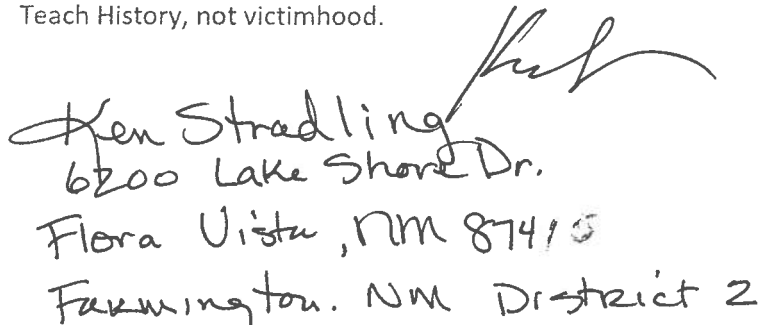 Teach History, not victimhood.
Ken Stradling
6200 Lake Shore Dr.
Flora Vista, NM 87415
Farmington. NM District 2